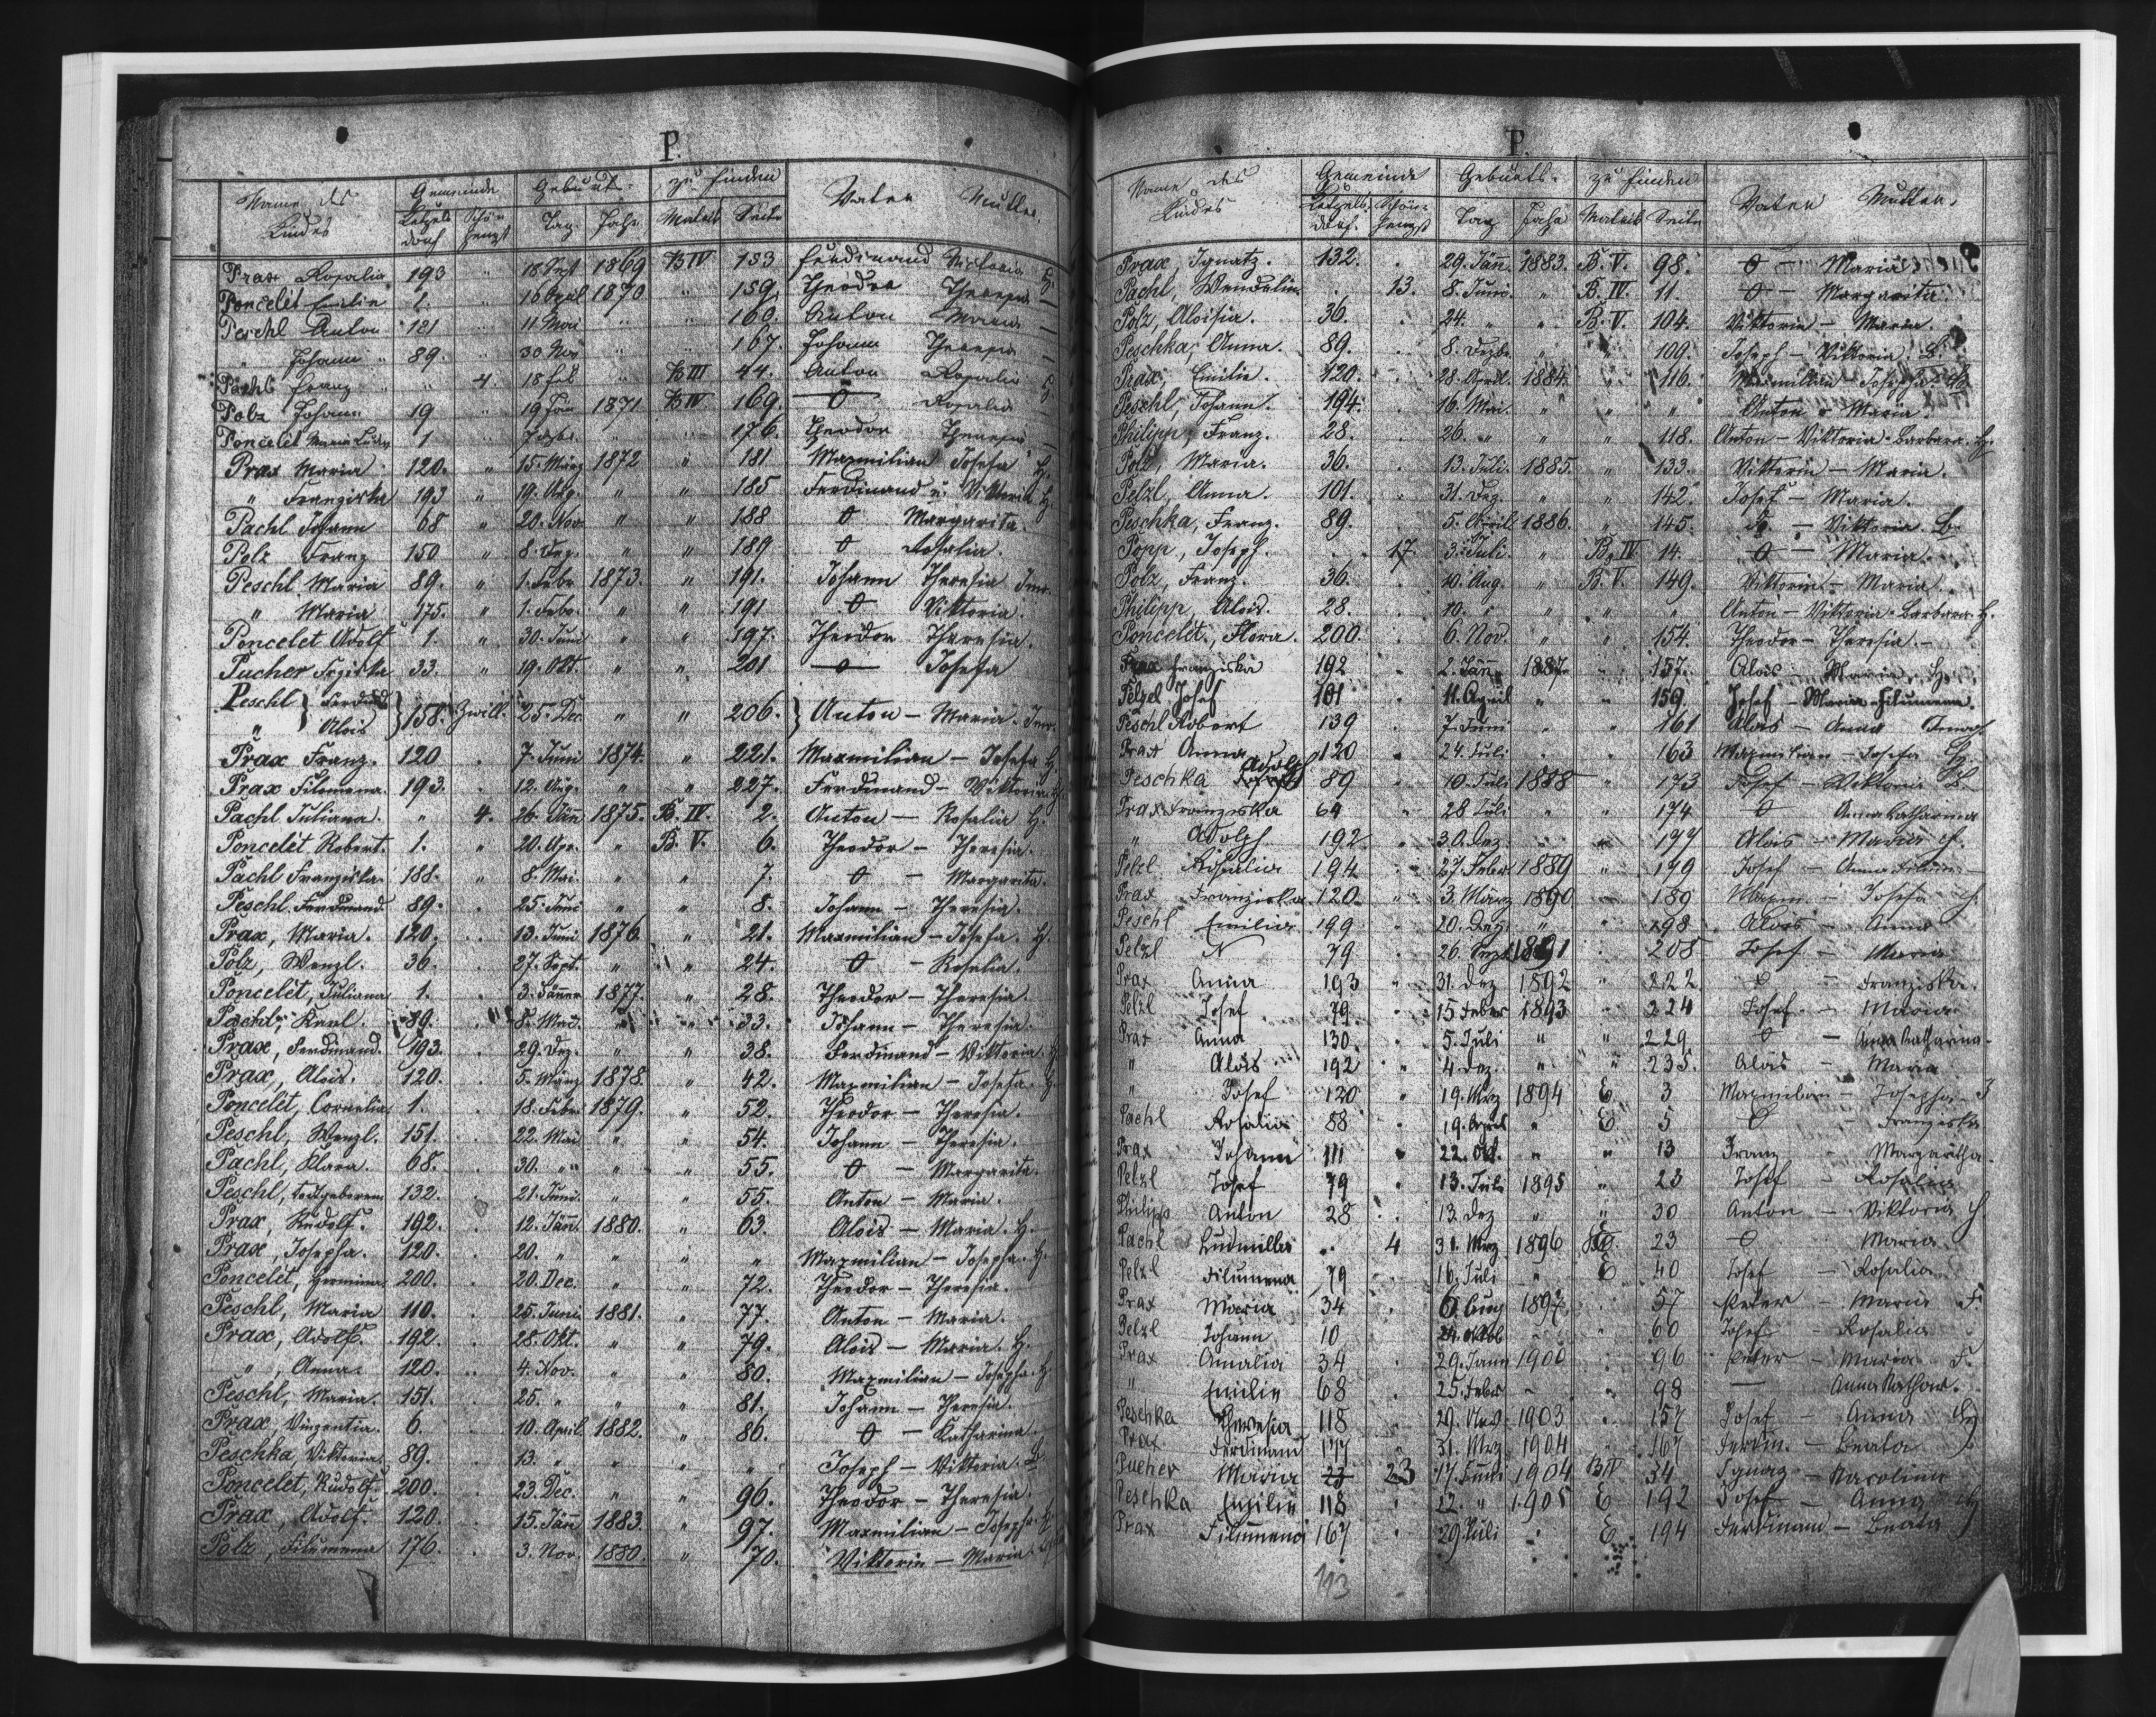 P.
Name des Kindes Gemeinde Geburt- zu finden Vater Mutter
Letzels dorf Schön hengst Tag. Jahr Matrik Seite
Prax Rosalia 193 " 18 Sept 1869 B IV 153 Ferdinand Viktoria H.
Poncelet Emilie 1. " 16 April 1870 " 159. Theodor Theresia —
Peschl Anton 121 " 11 Mai " " 160. Anton Maria —
" Johann " 89. " 30 Nov " " 167. Johann Theresia —
Pachl Franz " " 4. 18 Feb " B III 44. Anton Rosalia H
Polz Johann 19 " 19 Jän 1871 B IV 169. O Rosalia
Poncelet Maria 1 " " " 176. Theodor Theresia —
Prax Maria 120. " 15. März 1872 " 181 Maxmilian Josefa H.
" Franziska 193 " 19. Aug. " " 185 Ferdinand u. Viktoria H.
Pachl Johann 68 " 20. Nov " " 188 O Margarita.
Polz Franz 150 " 8. Dez. " " 189 O Rosalia.
Peschl Maria 89. " 1. Febr 1873. " 191. Johann Theresia
" Maria 175. " 1. Febr. " " 191 O Viktoria.
Poncelet Adolf 1. " 30. Juni " " 197. Theodor Theresia.
Pucher Frziska 33. " 19. Okt. " " 201 — o — Josefa
Peschl } Ferdinand
" Alois } 158. Zwill. 25. Dec " " 206. } Anton — Maria.
Prax Franz. 120 . 7. Juni 1874. " 221. Maxmilian — Josefa H
Prax Filomena. 193. . 12. Aug. " " 227. Ferdinand — Viktoria H
Pachl Juliana. " 4. 26. Jän 1875. B. IV. 2. Anton — Rosalia H.
Poncelet, Robert. 1. " 20. Apr. " B. V. 6. Theodor — Theresia.
Pachl Franziska. 188. " 8. Mai. " " 7. O — Margarita.
Peschl, Ferdinand 89. . 25. Juni " " 8. Johann — Theresia.
Prax, Maria. 120. . 13. Juni 1876. " 21. Maxmilian — Josefa. H.
Polz, Wenzl. 36. . 27. Sept. " " 24. O — Rosalia.
Poncelet, Juliana 1. . 3. Jänner 1877. " 28. Theodor — Theresia.
Peschl, Karl. 89. . 8. Mai. " " 33. Johann — Theresia.
Prax, Ferdinand. 193. . 29. Dez. " " 38. Ferdinand — Viktoria. H
Prax, Alois. 120. . 5. März 1878. " 42. Maxmilian — Josefa. H.
Poncelet, Cornelia 1. . 18. Febr. 1879. " 52. Theodor — Theresia.
Peschl, Wenzl. 151. . 22. Mai " " 54. Johann — Theresia.
Pachl, Klara. 68. . 30. " " " 55. O — Margarita.
Peschl, todtgeboren 132. . 21. Juni. " " 55. Anton — Maria.
Prax, Rudolf. 192. . 12. Jänn. 1880. " 63. Alois — Maria. H.
Prax, Josepha. 120. . 20. " " " " Maxmilian — Josepha. H.
Poncelet, Hermina. 200. . 20. Dec. " " 72. Theodor — Theresia.
Peschl, Maria 110. . 25. Juni 1881. " 77. Anton — Maria.
Prax, Adolf. 192. . 28. Okt. " " 79. Alois — Maria. H.
" , Anna. 120. . 4. Nov. " " 80. Maxmilian — Josepha. H
Peschl, Maria. 151. . 25. " " " 81. Johann — Theresia.
Prax, Vinzentia. 6. . 10. April 1882. " 86. O — Katharina.
Peschka, Viktoria. 89. . 13. " " " " Joseph — Viktoria. B.
Poncelet, Rudolf. 200. . 23. Dec. " " 96. Theodor — Theresia.
Prax, Adolf. 120. . 15. Jän 1883. " 97. Maxmilian — Josepha. H
Polz, Filumena 176. . 3. Nov. 1880. " 70. Viktorin — Maria.
P.
Name des Kindes Gemeinde Geburts- zu finden Vater Mutter.
Letzels- dorf. Schön- hengst Tag Jahr Matrik Seite
Prax, Ignatz. 132. . 29. Jänn. 1883. B. V. 98. O — Maria
Pachl, Wendelin. . 13. 8. Juni. " B. IV. 11. O — Margarita.
Polz, Aloisia. 36. . 24. " " B. V. 104. Viktorin — Maria.
Peschka, Anna. 89. . 8. Dezbr. " " 109. Joseph — Viktoria. B.
Prax, Emilie. 120. . 28. April. 1884. " 116. Maxmilian — Josepha. H.
Peschl, Johann. 194. . 16. Mai. " " " Anton — Maria.
Philipp, Franz. 28. . 26. " " " 118. Anton — Viktoria-Barbara. H.
Polz, Maria. 36. . 13. Juli. 1885. " 133. Viktorin — Maria.
Pelzl, Anna. 101. . 31. Dez. " " 142. Josef — Maria.
Peschka, Franz. 89. . 5. April 1886. " 145. Jos. — Viktoria. B.
Popp, Joseph. . 17. 3. Juli. " B. IV 14. O — Maria.
Polz, Franz. 36. . 10. Aug. " B. V. 149. Viktorin — Maria.
Philipp, Alois. 28. . 10. " " " " Anton — Viktoria-Barbara. H.
Poncelet, Flora. 200. . 6. Nov. " " 154. Theodor — Theresia. —
Prax Franziska 192 . 2. Jänn. 1887. " 157. Alois — Maria. H.
Pelzel Josef 101 . 11. April " " 159. Josef — Maria Filumena.
Peschl Robert 139 . 7. Juni " " 161 Alois — Anna
Prax Anna 120 . 24. Juli " " 163 Maxmilian — Josefa H.
Peschka Adolph 89 " 10. Juli 1888 " 173 Josef — Viktoria B.
Prax Franziska 64 " 28 Juli " " 174 O Anna Katharina
" Adolph. 192 . 30. Dez. " " 177 Alois — Maria H.
Pelzl Rosalia 194 . 27. Feber 1889 " 179 Josef — Anna
Prax Franziska 120 " 3. März 1890 " 189 Maxm. — Josefa H.
Peschl Emilia 199 " 20. Dez. " " 198 Alois — Anna
Pelzl N 79 26. 1891 208 Josef — Maria
Prax Anna 193 " 31. Dez 1892 " 222 O — Franziska.
Pelzl Josef 79 . 15 Feber 1893 " 224 Josef. — Maria
Prax Anna 130 . 5. Juli " " 229 O — Anna Katharina
" Alois 192 " 4. Dez. " " 235. Alois — Maria
" Josef 120 " 19. Mrz 1894 E 3 Maxmilian — Josepha J
Pachl Rosalia 88 " 19. April " E 5 O — Franziska
Prax Johann 111 " 22. Okt. " " 13 Franz — Margaritha.
Pelzl Josef 79 . 13. Juli 1895 " 23 Josef — Rosalia
Philipp Anton 28 . 13. Dez " " 30 Anton — Viktoria H.
Pachl Ludmilla .. 4 31. Mrz 1896 23 O — Maria
Pelzl Filumena 79 16. Juli " E 40 Josef — Rosalia
Prax Maria 34 1897 57 Peter — Maria F
Pelzl Johann 10 60 Josef — Rosalia
Prax Amalia 34 . 29. Jänn 1900 " 96 Peter — Maria F.
" Emilie 68 . 25. Feber " " 98 — Anna Kathar.
Peschka Theresia 118 29. Nov. 1903 " 157 Josef — Anna H
Prax Ferdinand 177 " 31. Mrz 1904 " 167 Ferdin. — Beata
Pucher Maria 23 23 17. Juni 1904 B IV 34 Ignaz — Karolina
Peschka Emilie 118 " 12. " 1905 E 192 Josef — Anna H
Prax Filumena 167 . 29. Juli " E 194 Ferdinand — Beata
113